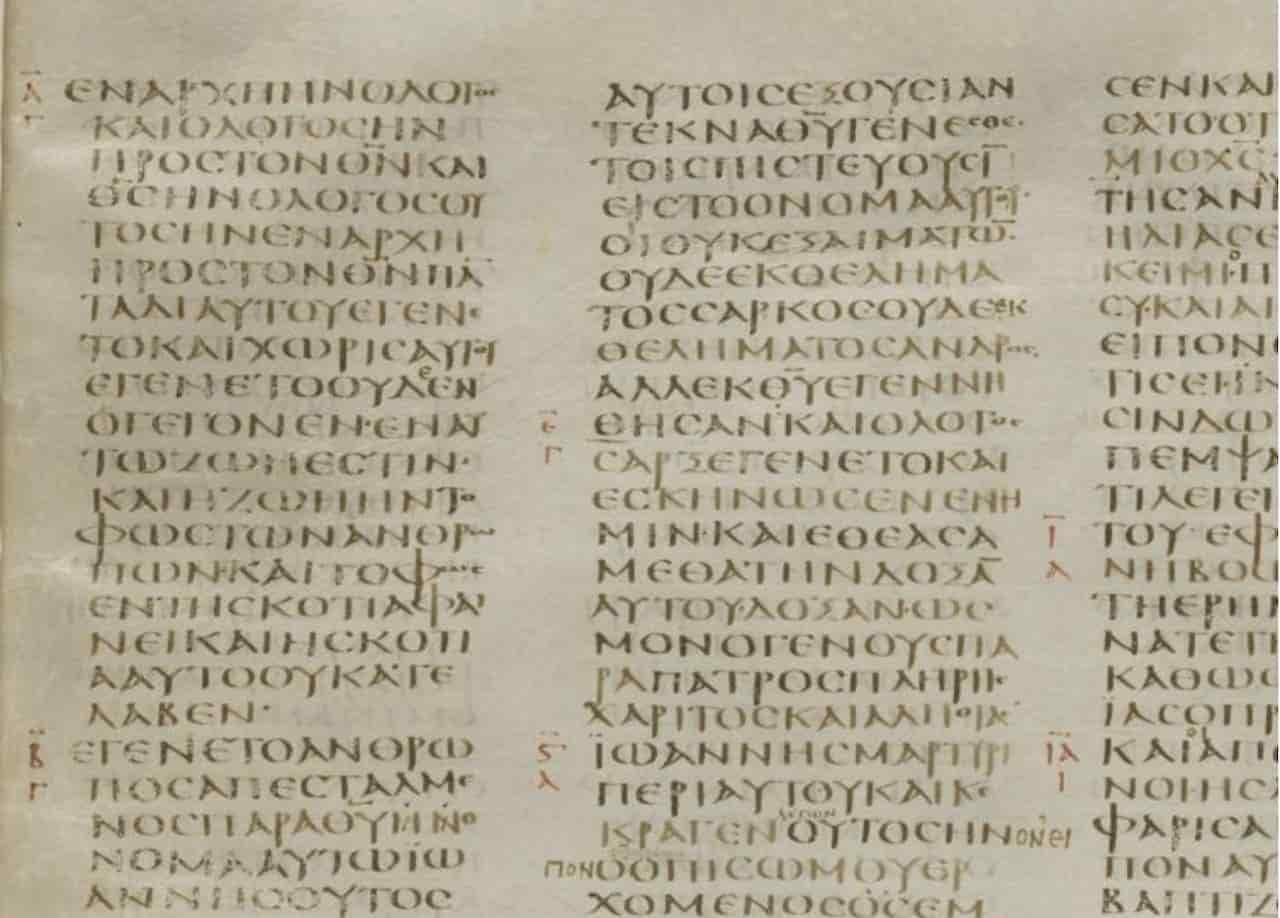 Α
Γ
ΕΝΑΡΧΗΗΝΟΛΟΓΟϹ
ΚΑΙΟΛΟΓΟϹΗΝ
ΠΡΟϹΤΟΝΘ̅Ν̅ΚΑΙ
Θ̅Ϲ̅ΗΝΟΛΟΓΟϹΟΥ
ΤΟϹΗΝΕΝΑΡΧΗ
ΠΡΟϹΤΟΝΘ̅Ν̅ΠΑ̅
ΤΑΔΙΑΥΤΟΥΕΓΕΝΕ
ΤΟΚΑΙΧΩΡΙϹΑΥΤΟΥ
ΕΓΕΝΕΤΟΟΥΔεΕΝ
ΟΓΕΓΟΝΕΝ·ΕΝΑΥ
ΤΩΖΩΗΕϹΤΙΝ·
ΚΑΙΗΖΩΗΗΝΤΟ
ΦΩϹΤΩΝΑΝΘΡΩ
ΠΩΝ·ΚΑΙΤΟΦΩϹ
ΕΝΤΗϹΚΟΤΙΑΦΑΙ
ΝΕΙΚΑΙΗϹΚΟΤΙ
ΑΑΥΤΟΟΥΚΑΤΕ
ΛΑΒΕΝ·
Β
Γ
ΕΓΕΝΕΤΟΑΝΘΡΩ
ΠΟϹΑΠΕϹΤΑΛΜΕ
ΝΟϹΠΑΡΑΘ̅Υ̅ΗΝΟ
ΝΟΜΑΑΥΤΩΙΩ
ΑΝΝΗϹΟΥΤΟϹ
ΑΥΤΟΙϹΕΞΟΥϹΙΑΝ
ΤΕΚΝΑΘ̅Υ̅ΓΕΝΕϹΘΕ·
ΤΟΙϹΠΙϹΤΕΥΟΥϹΙ̅
ΕΙϹΤΟΟΝΟΜΑΑΥΤΟΥ
ΟΙΟΥΚΕΞΑΙΜΑΤΩ̅·
ΟΥΔΕΕΚΘΕΛΗΜΑ
ΤΟϹϹΑΡΚΟϹΟΥΔΕΕΚ
ΘΕΛΗΜΑΤΟϹΑΝΔΡΟϹ
ΑΛΛΕΚΘ̅Υ̅ΕΓΕΝΝΗ
Ε
Γ
ΘΗϹΑΝΚΑΙΟΛΟΓΟϹ
ϹΑΡΞΕΓΕΝΕΤΟΚΑΙ
ΕϹΚΗΝΩϹΕΝΕΝΗ
ΜΙΝ·ΚΑΙΕΘΕΑϹΑ
ΜΕΘΑΤΗΝΔΟΞΑ̅
ΑΥΤΟΥ·ΔΟΞΑΝ·ΩϹ
ΜΟΝΟΓΕΝΟΥϹΠΑ
ΡΑΠΑΤΡΟϹΠΛΗΡΗϹ
ΧΑΡΙΤΟϹΚΑΙΑΛΗΘΙΑϹ
Ϛ
Α
ΪΩΑΝΝΗϹΜΑΡΤΥΡΙ
ΠΕΡΙΑΥΤΟΥΚΑΙΚΕ
ΚΡΑΓΕΝΟΥΤΟϹΗΝΟΝΕΙ
ΠΟΝΟΟΠΙϹΩΜΟΥΕΡ
ΧΟΜΕΝΟϹΟϹΕΜ
ϹΕΝΚΑΙ
ϹΑΤΟΟΤ
ΜΙΟΧ̅Ϲ̅
ΤΗϹΑΝ
ΗΛΙΑϹΕ
ΚΕΙΜΙΠ
ϹΥ·ΚΑΙΑΙ
ΕΙΠΟΝ
ΤΙϹΕΙΙΝ
ϹΙΝΔΩ
ΠΕΜΨΑ
ΤΙΛΕΓΕΙ
Ι
Α
ΤΟΥ·ΕΦ
ΝΗΒΟΩ
ΤΗΕΡΗΜ
ΝΑΤΕΤΗ
ΚΑΘΩϹ
ΙΑϹΟΠΡ
ΙΑ
Ι
ΚΑΙΑΠΕ
ΝΟΙΗϹΑ
ΦΑΡΙϹΑ
ΠΟΝΑΥ
ΒΑΠΤΙΖ